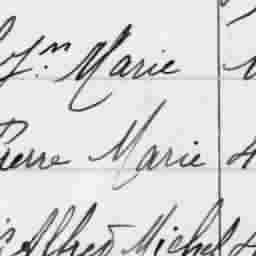 Jn. Marie
Pierre Marie 4
Alfred Michel